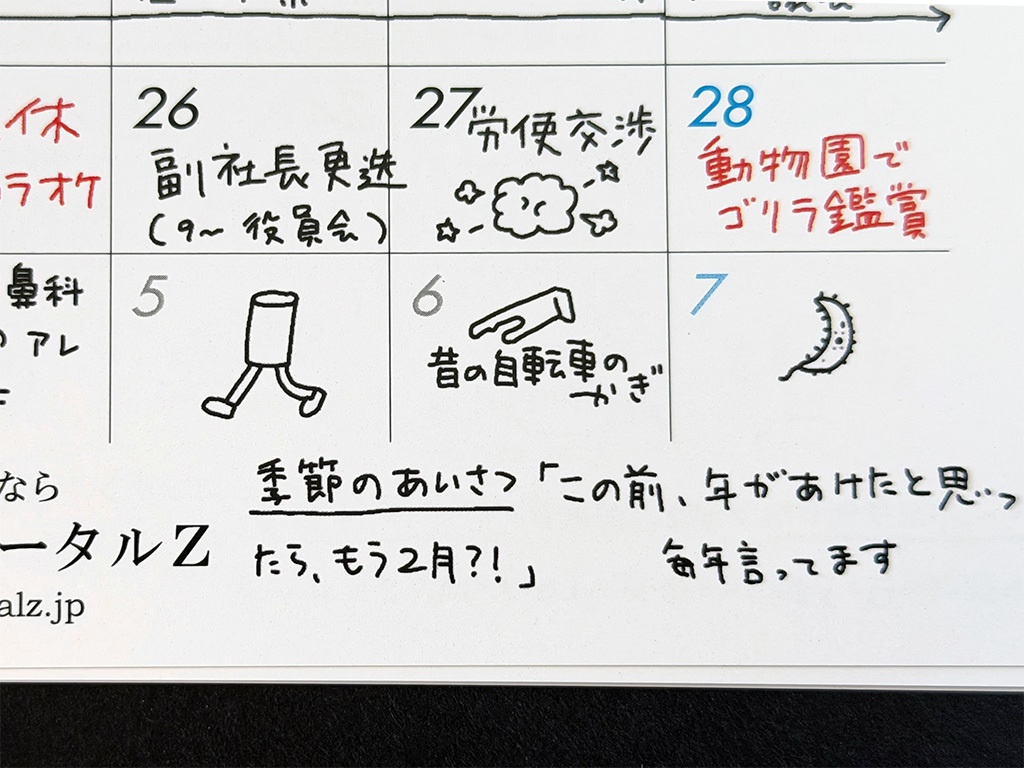 休
ラオケ
26
副社長更迭
(9～役員会)
27
労使交渉
28
動物園で
ゴリラ鑑賞
鼻科
アレ
5
6
昔の自転車の
かぎ
7
なら
ータルZ
alz.jp
季節のあいさつ「この前、年があけたと思っ
たら、もう2月?!」 毎年言ってます